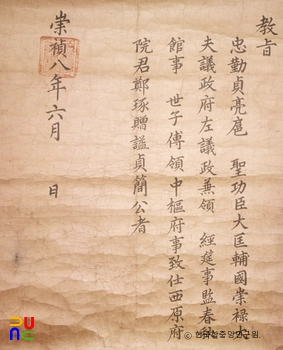 教旨
忠勤貞亮扈 聖功臣大匡輔國崇祿大
夫議政府左議政兼領 經筵事監春秋
館事 世子傅領中樞府事致仕西原府
院君鄭琢贈諡貞簡公者
崇禎八年六月 日
© 한국학중앙연구원